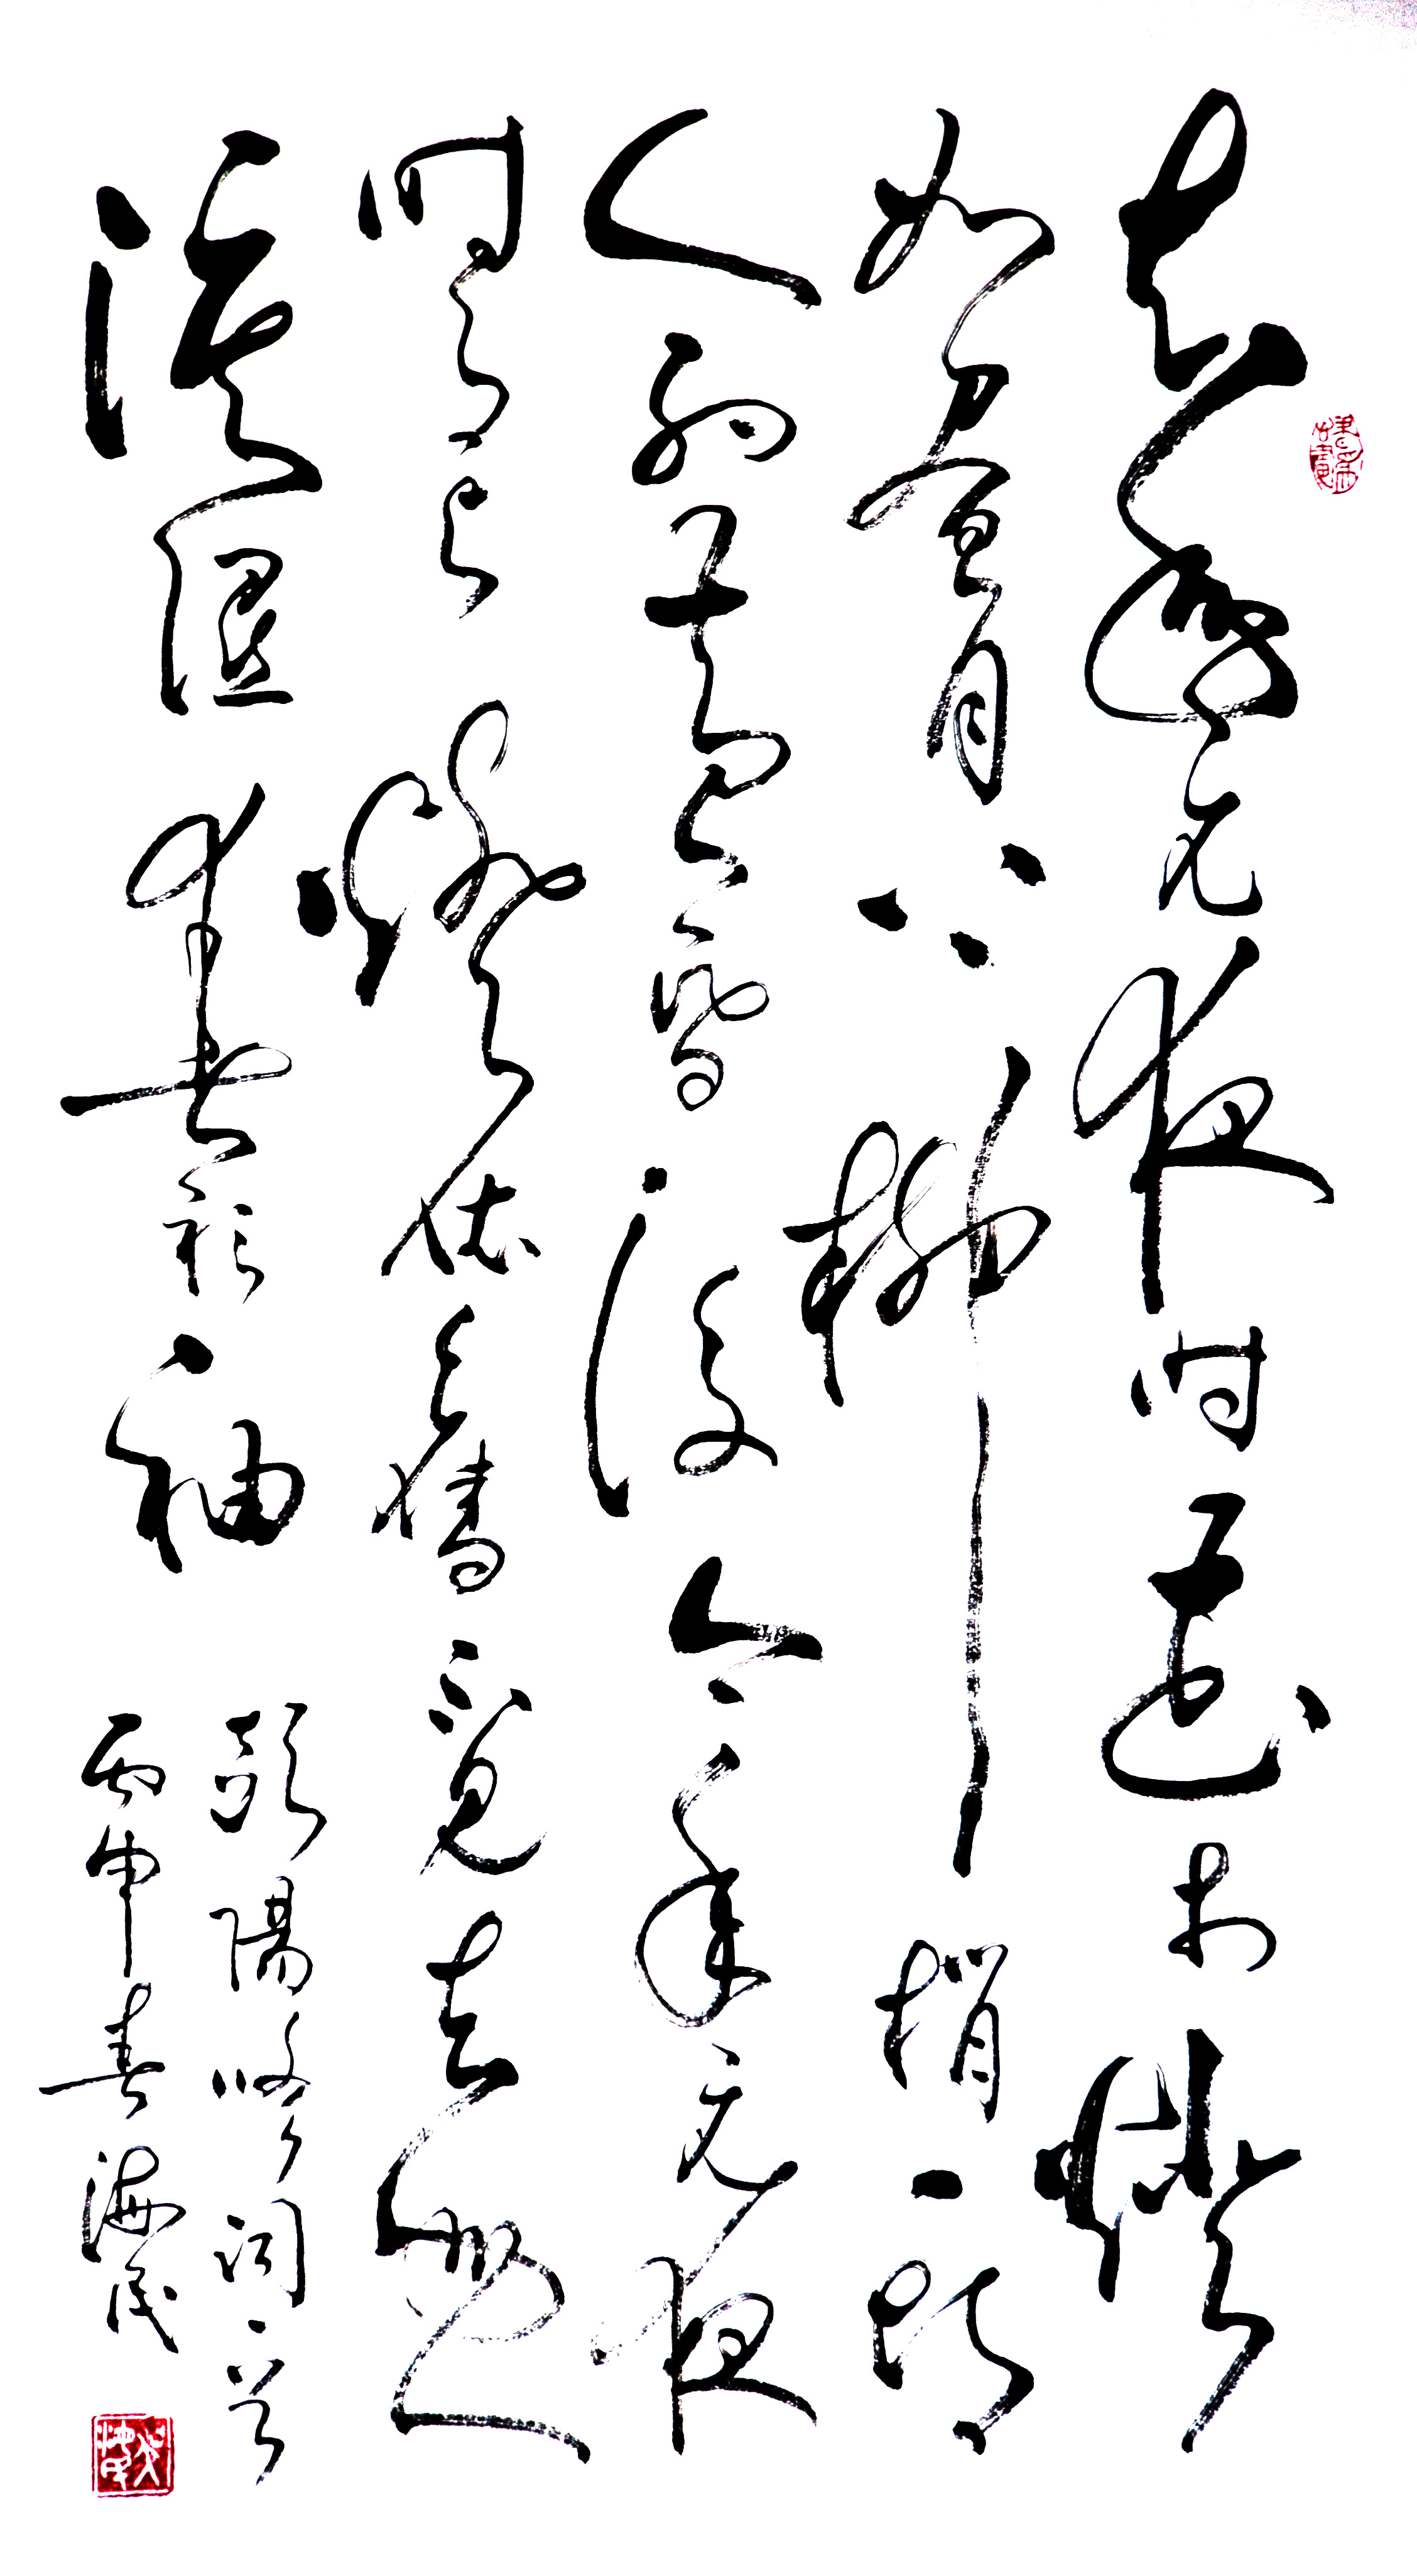 去年元夜時花市燈
如晝月上柳梢頭
人約黃昏後今年元夜
時月與燈依舊不見去年人
淚濕春衫袖
歐陽修詞一首
丙申春海民